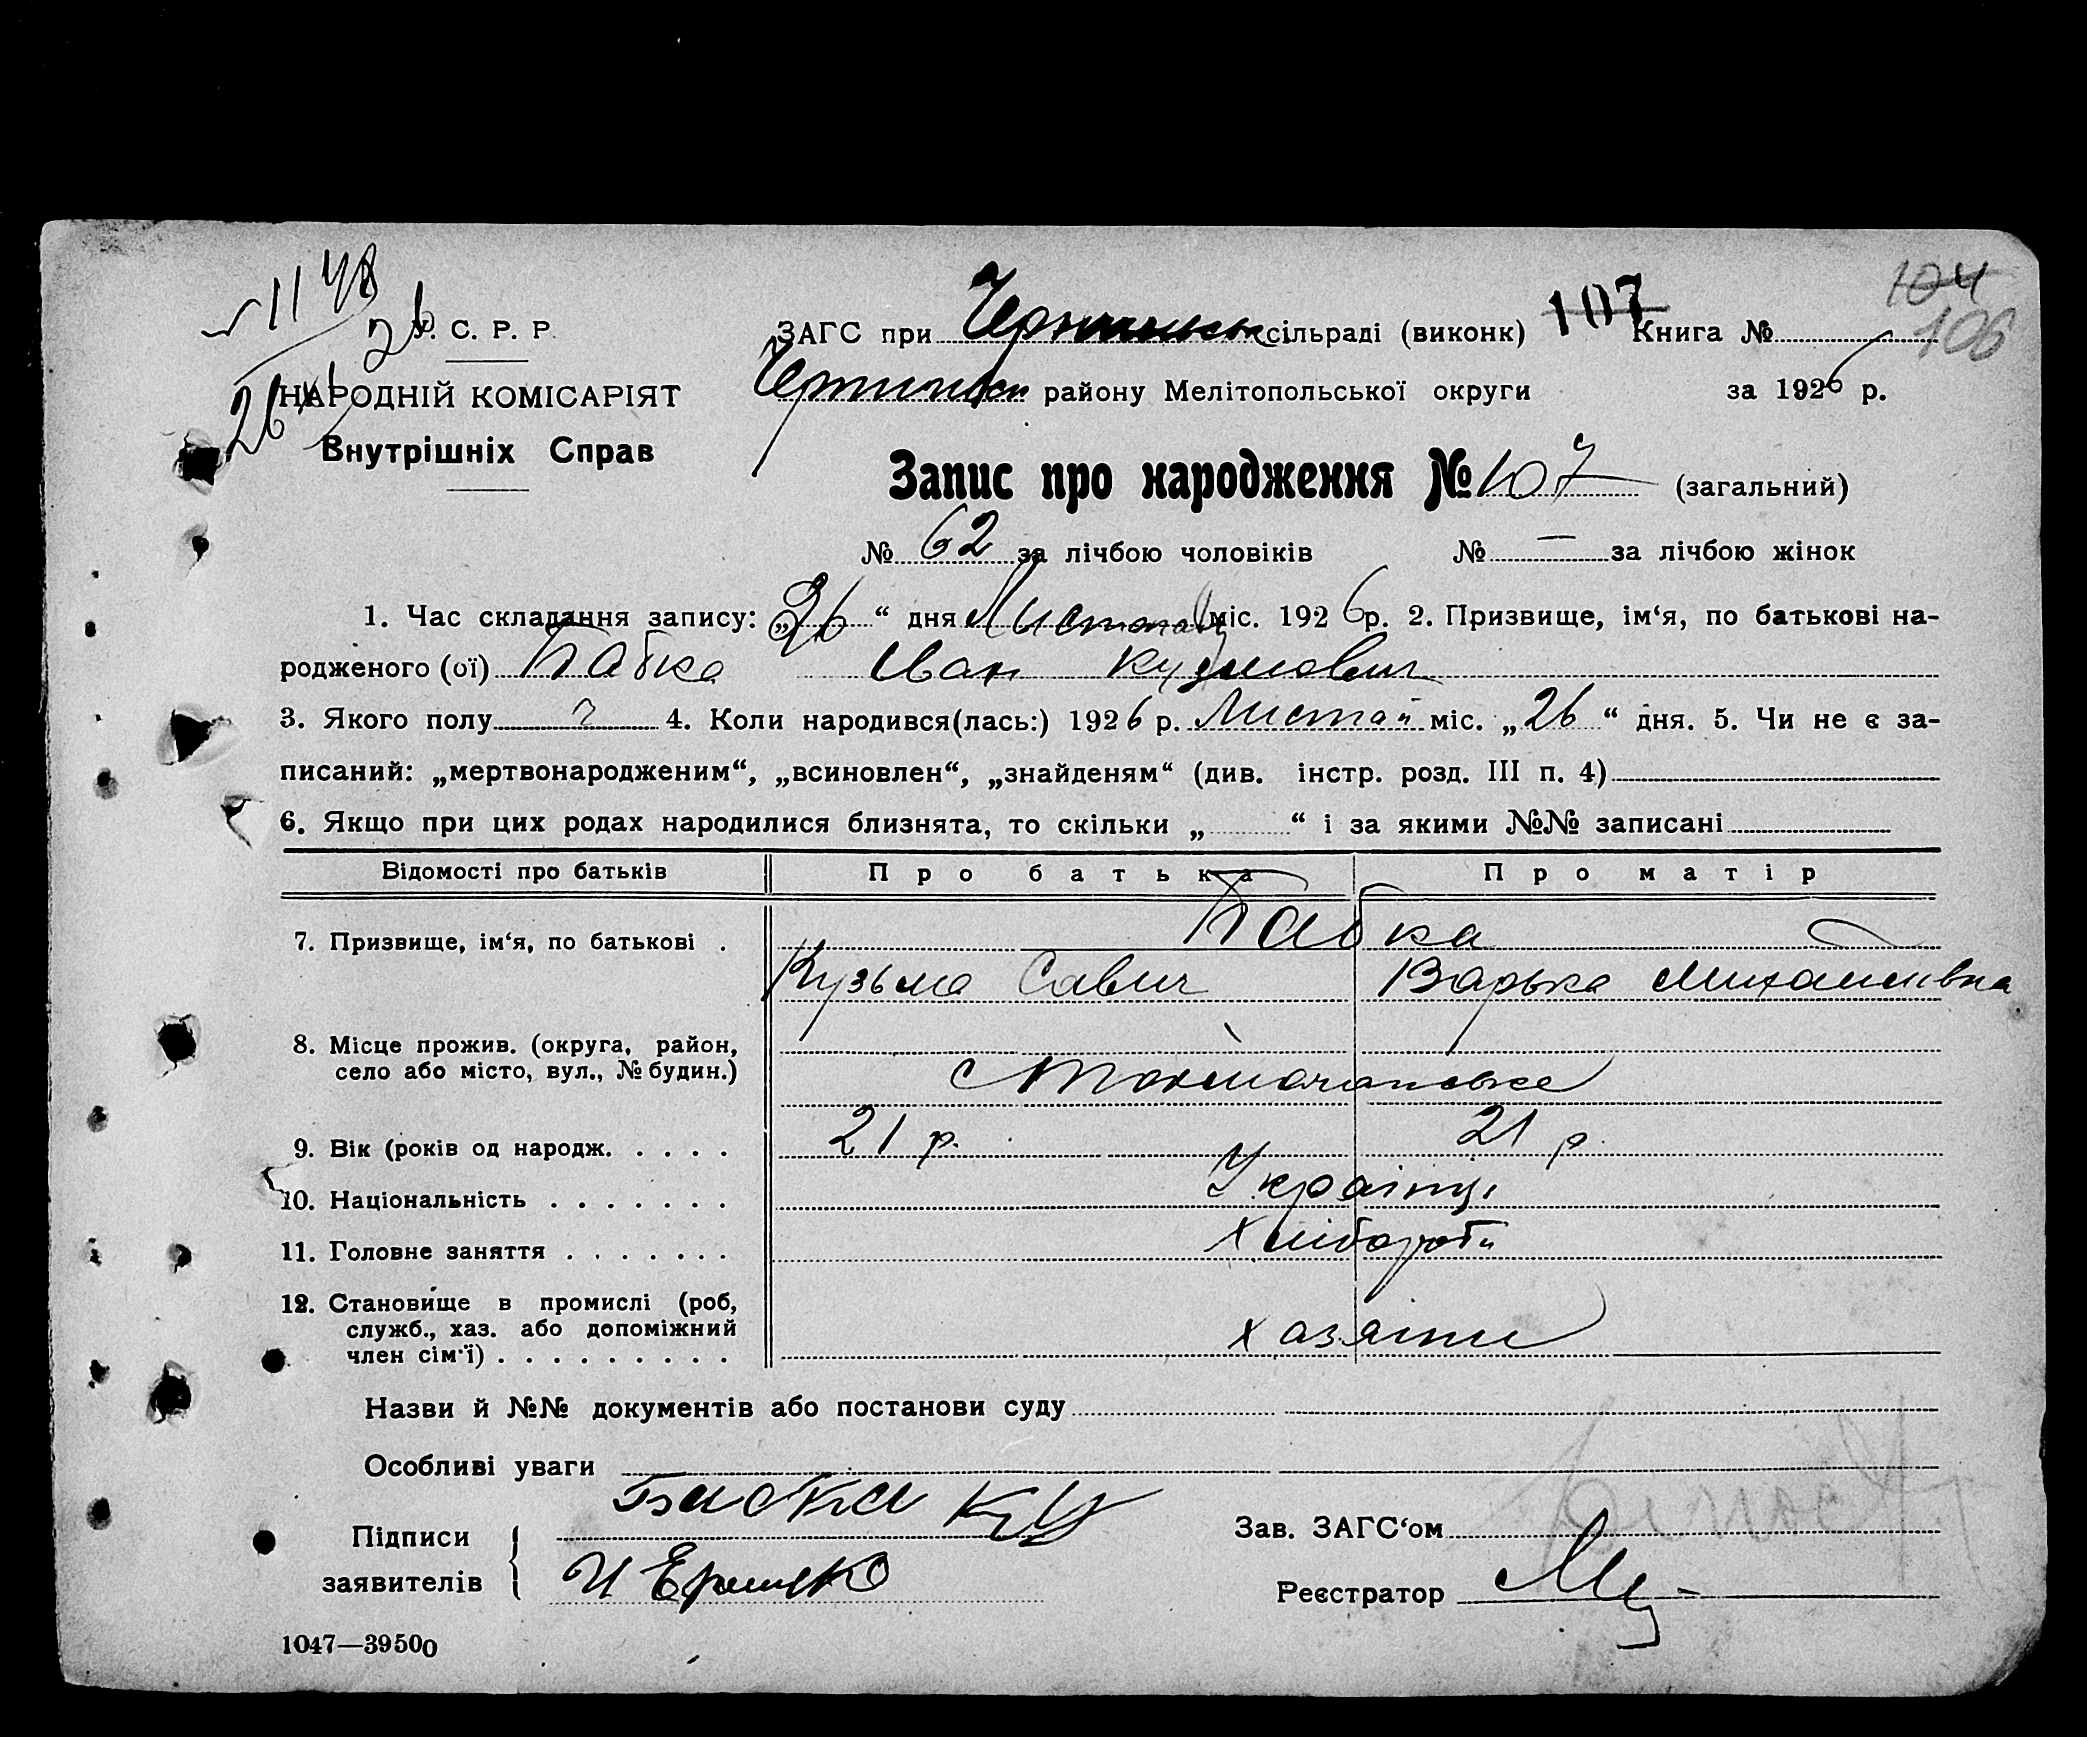 1148
26
У. С. Р. Р.
ЗАГС при сільраді (виконк) 107 Книга №
104
106
НАРОДНІЙ КОМІСАРІЯТ
району Мелітопольської округи за 1926 р.
Внутрішніх Справ
Запис про народження № 107 (загальний)
№ 62 за лічбою чоловіків № — за лічбою жінок
1. Час складання запису: „26“ дня Листопад міс. 1926 р. 2. Призвище, ім‘я, по батькові на-
родженого (ої) Бабка Іван Кузмович
3. Якого полу ч 4. Коли народився(лась:) 1926 р. Листоп міс. „26“ дня. 5. Чи не є за-
писаний: „мертвонародженим“, „всиновлен“, „знайденям“ (див. інстр. розд. III п. 4)
6. Якщо при цих родах народилися близнята, то скільки „ “ і за якими №№ записані
Відомості про батьків Про батька Про матір
7. Призвище, ім‘я, по батькові . Бабка
Кузьма Савич Варька Михайлівна
8. Місце прожив. (округа, район,
село або місто, вул., № будин.)
9. Вік (років од народж. . . . . 21 р. 21 р.
10. Національність . . . . . . . Українці
11. Головне заняття . . . . . . . Хлібороби
12. Становище в промислі (роб,
служб., хаз. або допоміжний
член сім‘ї) . . . . . . . . . хазяїни
Назви й №№ документів або постанови суду
Особливі уваги
Підписи Бабка
Зав. ЗАГС‘ом
заявителів
Реєстратор
1047—39500